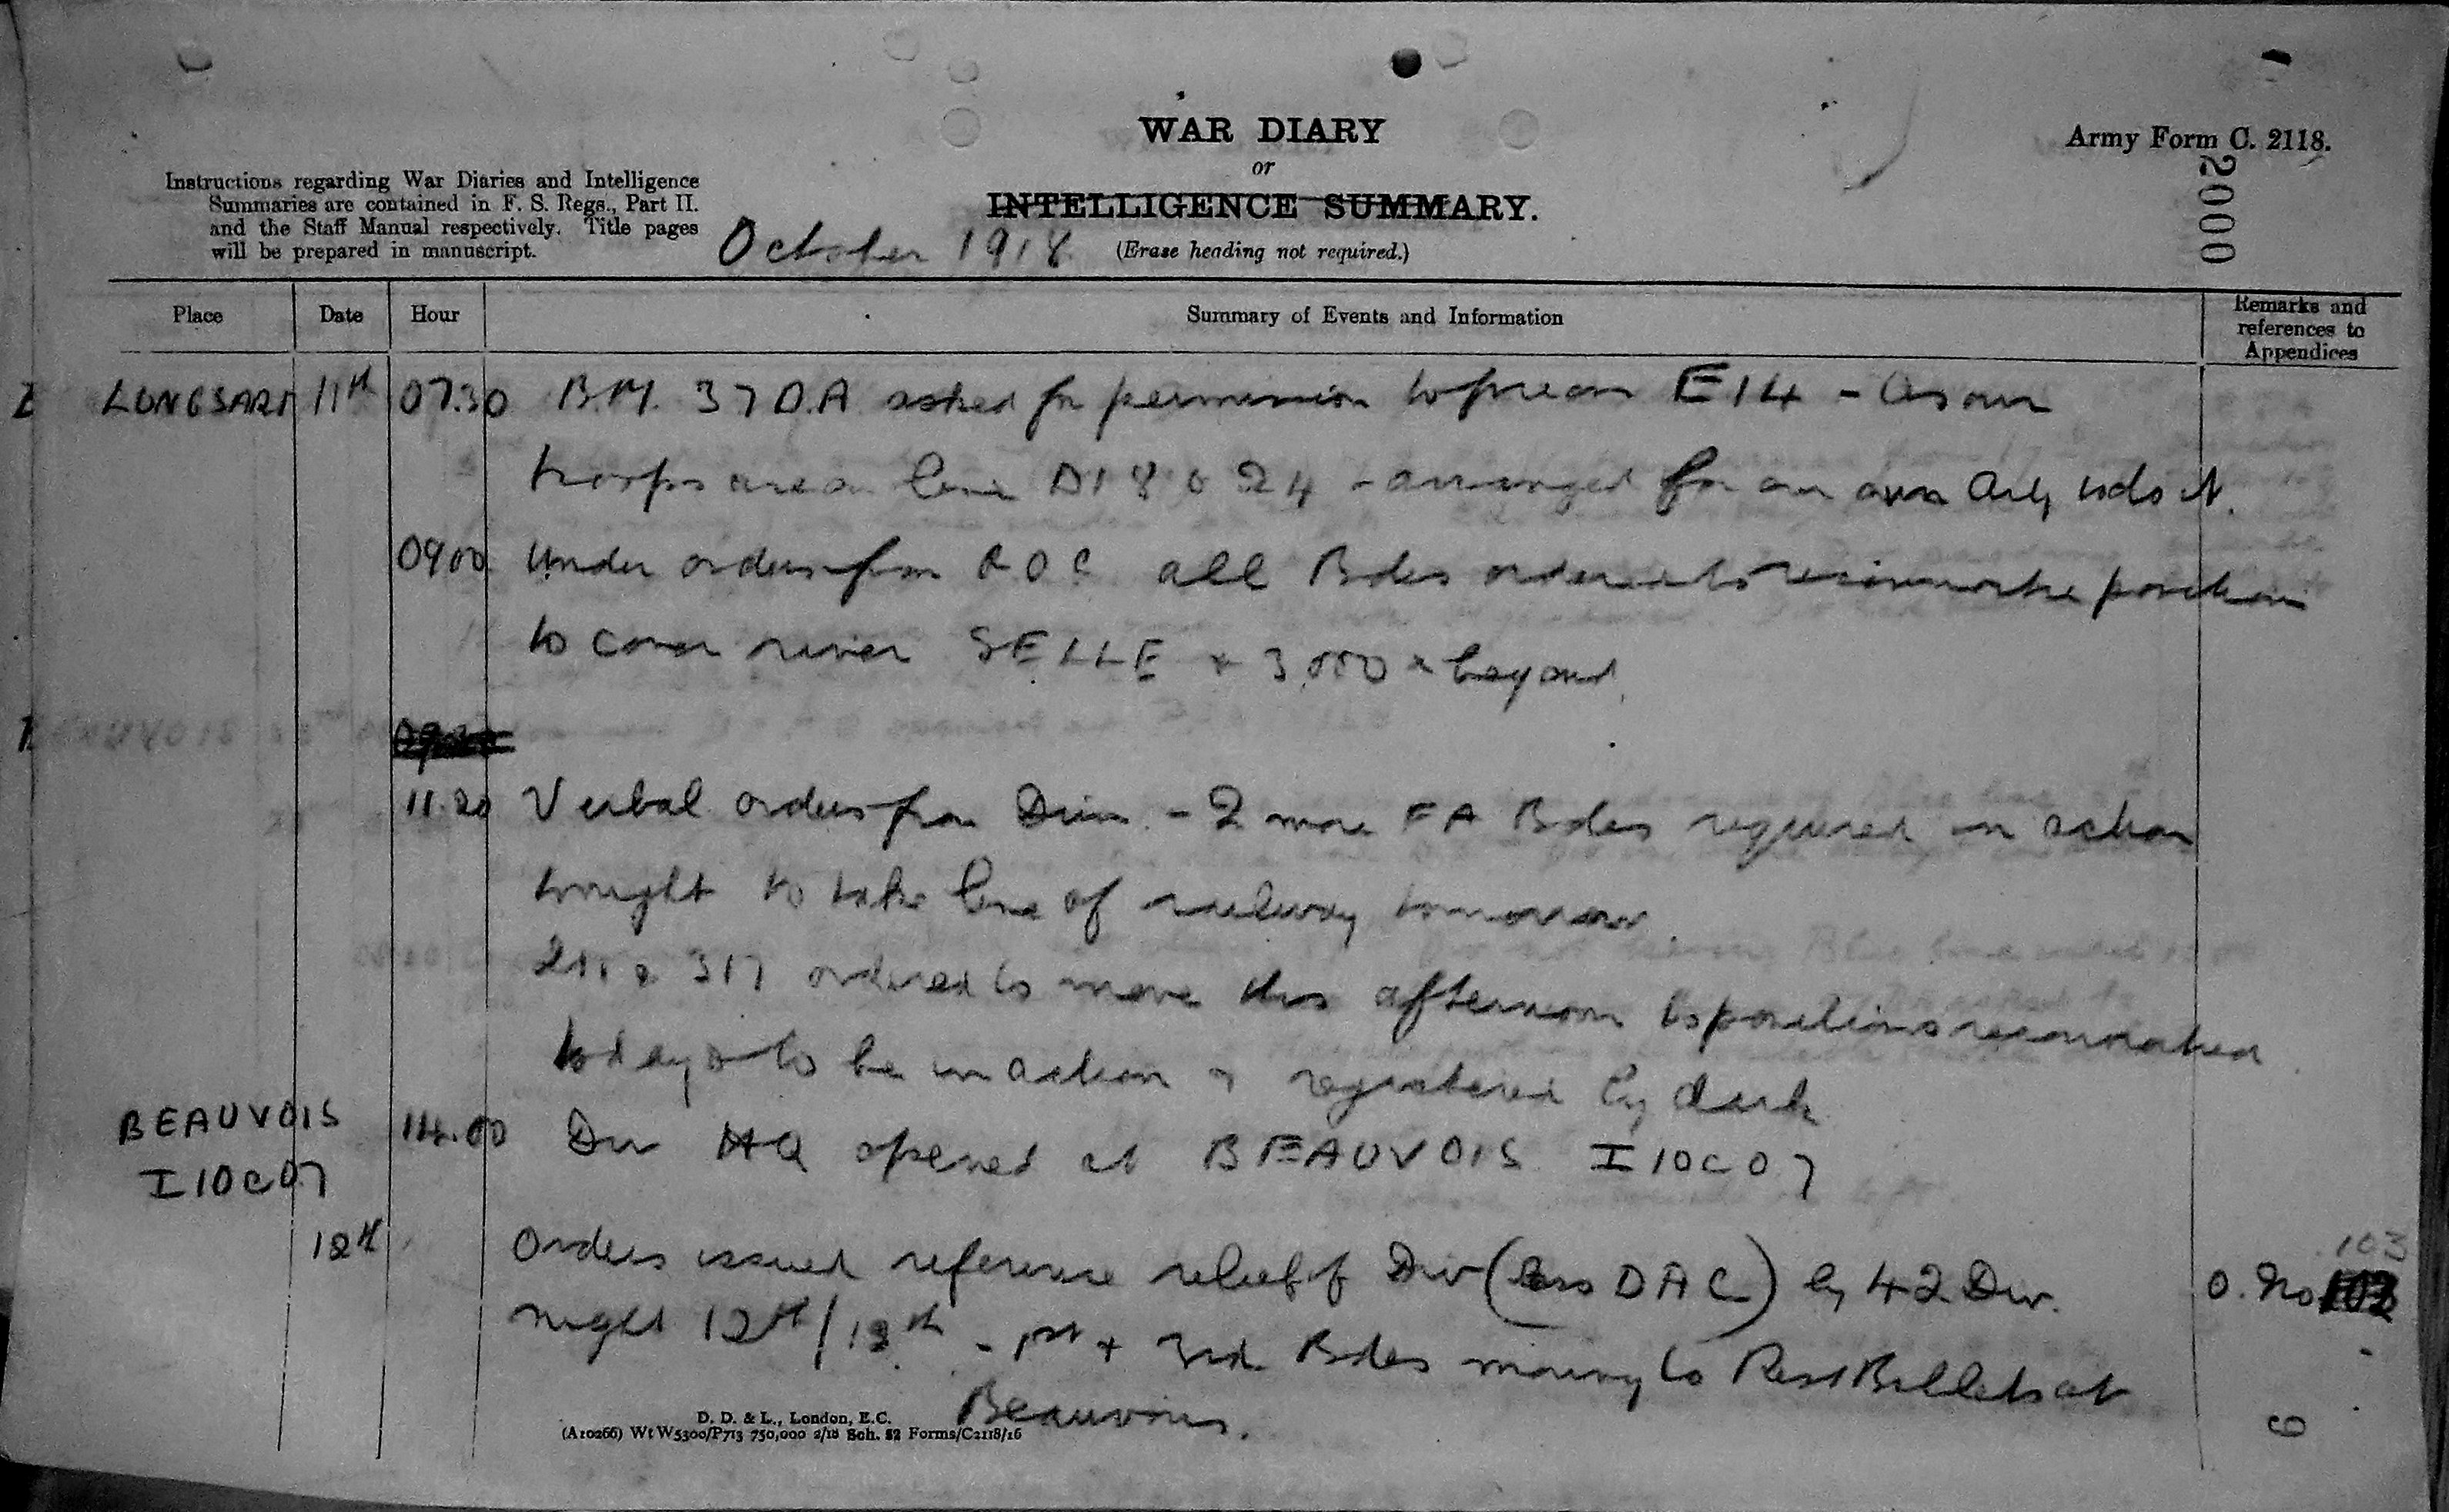 WAR DIARY
or
INTELLIGENCE SUMMARY.
(Erase heading not required.)
Army Form C. 2118.
2000
Instructions regarding War Diaries and Intelligence
Summaries are contained in F. S. Regs., Part II.
and the Staff Manual respectively. Title pages
will be prepared in manuscript.
October 1918
Place Date Hour Summary of Events and Information Remarks and references to Appendices
LONGSART 11th 07.30 B.M. 37 D.A asked for permission to fire on E14 - As our
troops are on line D18 & 24 - arranged for our own Arty to do it.
0900 Under orders from all Bdes ordered to reconnoitre positions
to cover river SELLE + 3,000 x beyond.
11.20 Verbal orders from Divn. - 2 more FA Bdes required in action
tonight to take line of railway tomorrow.
211 & 317 ordered to move this afternoon to positions reconnoitred
today & to be in action & registered by dark
BEAUVOIS 14.00 Div HQ opened at BEAUVOIS I10c07
I10c07
12th Orders issued reference relief of Div (less DAC) by 42 Div. O. No 103
night 12th/13th - 1st + 3rd Bdes moving to Rest Billets at
Beauvois.
D. D. & L., London, E.C.
(A10266) Wt W5300/P713 750,000 2/18 Sch. 52 Forms/C2118/16